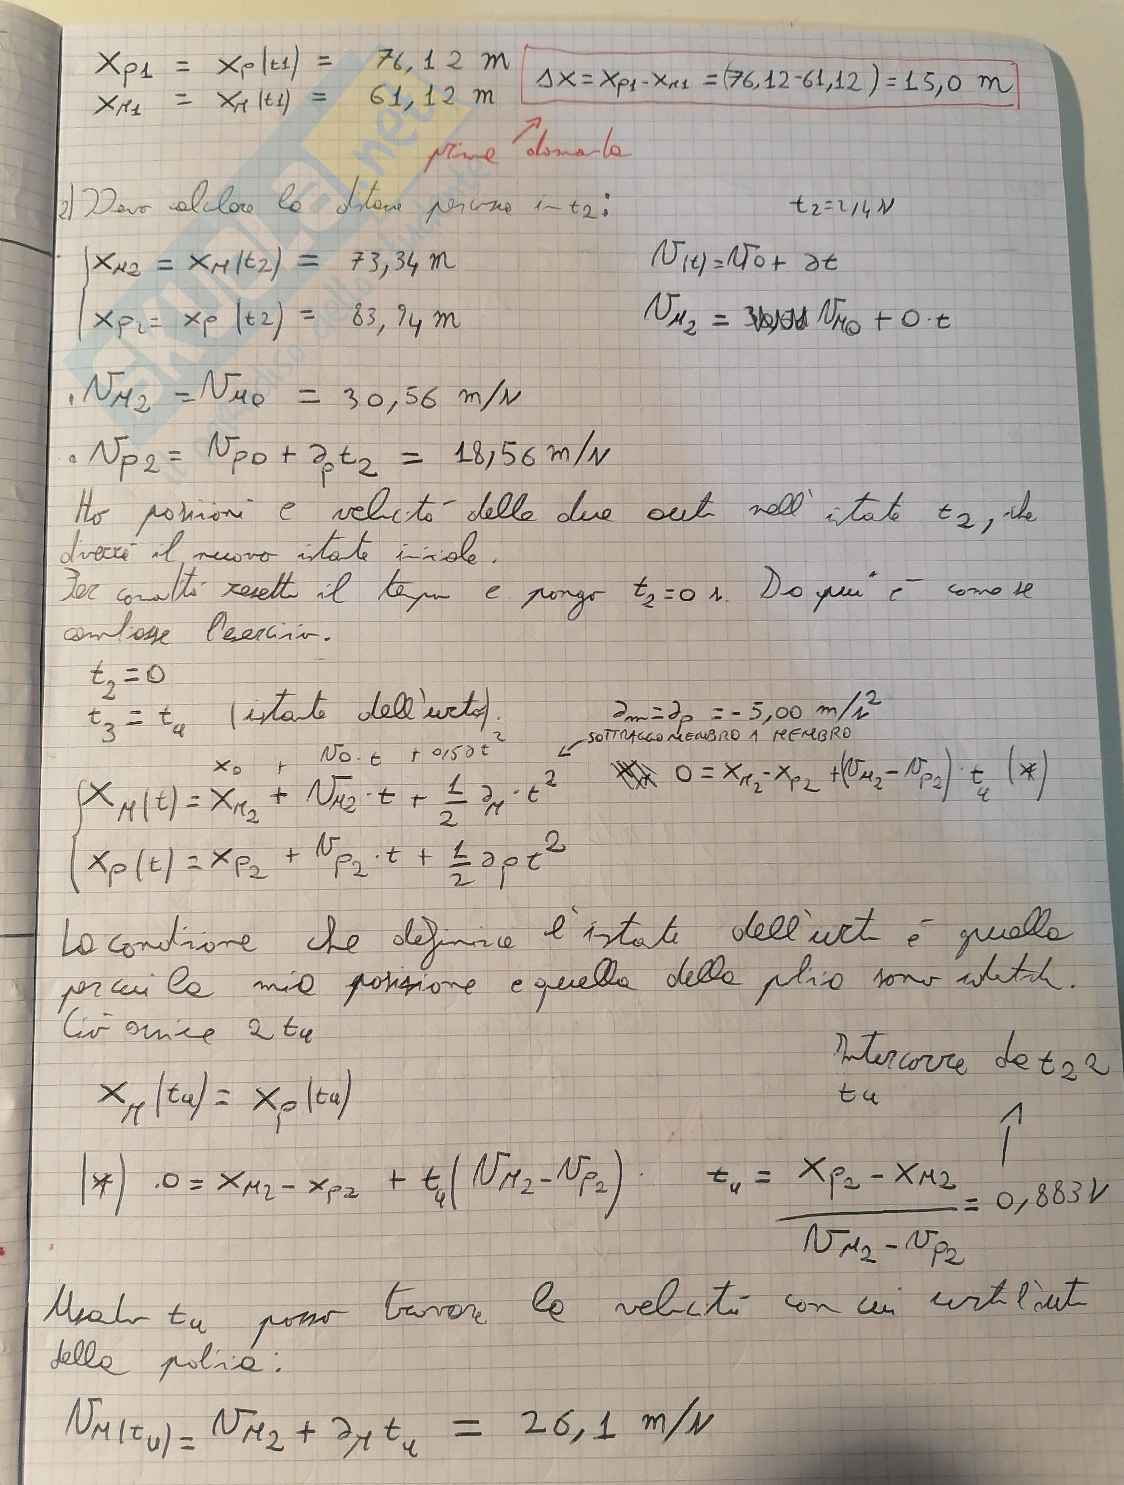 xp1 = xp(t1) = 76,12 m
xM1 = xM(t1) = 61,12 m
Δx = xp1 - xM1 = (76,12-61,12) = 15,0 m
prima domanda
2) Devo calcolare la distanza percorsa in t2:
t2=2,4 s
xM2 = xM(t2) = 73,34 m
v(t)=v0+at
xp2 = xp(t2) = 83,94 m
vM2 = vM0 + 0·t
• vM2 = vM0 = 30,56 m/s
• vp2 = vp0 + ap t2 = 18,56 m/s
Ho posizioni e velocità delle due auto nell'istante t2, che
diverrà il nuovo istante iniziale.
Per comodità resetto il tempo e pongo t2=0 s. Da qui è come se
cambiasse l'esercizio.
t2=0
t3 = tu (istante dell'urto).
am=ap = -5,00 m/s²
SOTTRAGGO MEMBRO A MEMBRO
x0 + v0·t + 0,5at²
0 = xM2-xp2+(vM2-vp2)·tu (*)
xM(t) = xM2 + vM2·t + 1/2 aM·t²
xp(t) = xp2 + vp2·t + 1/2 ap t²
La condizione che definisce l'istante dell'urto è quella
per cui la mia posizione e quella della polizia sono identiche.
Ciò avviene a tu
Intercorre da t2 a
tu
xM(tu) = xp(tu)
(*) ·0 = xM2 - xp2 + tu(vM2-vp2)·
tu = (xp2 - xM2)/(vM2 - vp2) = 0,883 s
Usando tu posso trovare la velocità con cui urto l'auto
della polizia:
vM(tu) = vM2 + aM tu = 26,1 m/s